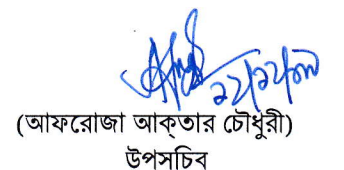 (আফরোজা আক্তার চৌধুরী)
উপসচিব